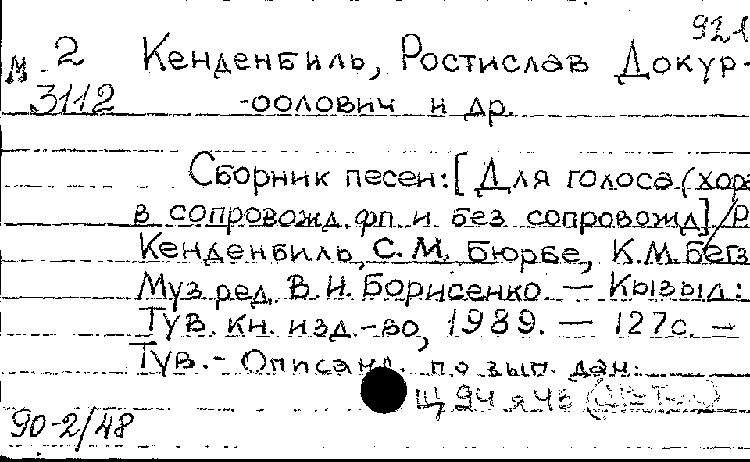 921
М 2 Кенденбиль, Ростислав Докур-
3112 -оолович и др.
Сборник песен: [Для голоса (хора
в сопровожд. фп. и без сопровожд] / Р
Кенденбиль, С. М. Бюрбе, К. М. Бегз
Муз. ред. В. Н. Борисенко. — Кызыл:
Тув. кн. изд.-во, 1989. — 127с. —
Тув. - Описано по вып. дан.
Щ 94 я 43
90-2/48